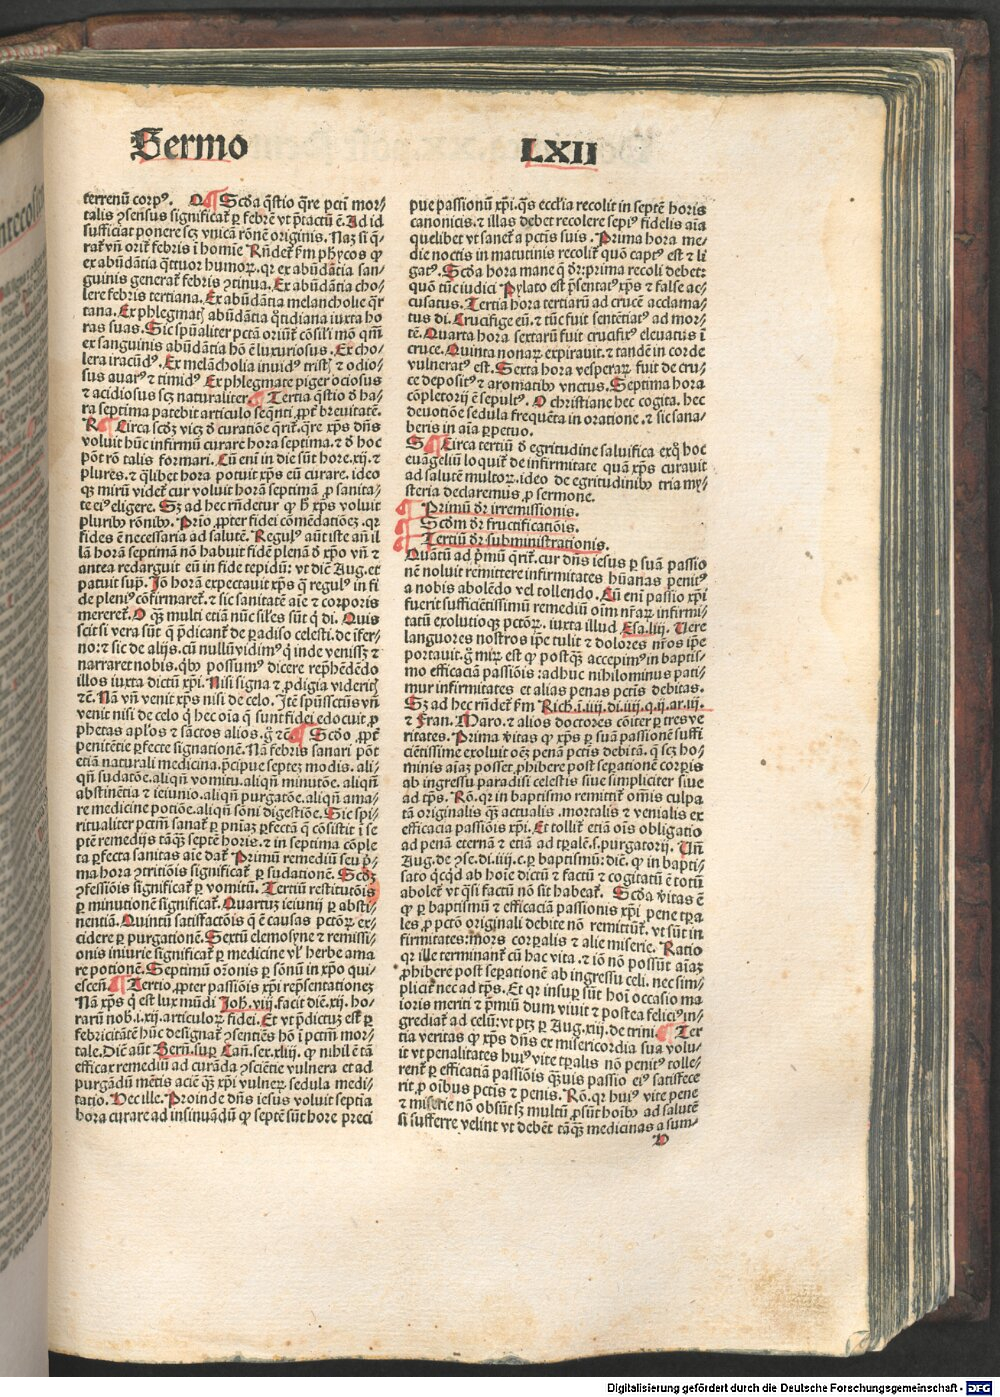 Sermo
LXII
terrenū corpꝰ. Q ¶ Scđa q̄stio q̄re pctī mor⸗
talis ꝯsensus significat̃ ꝑ febrē vt p̄tactū ē. Ad id
sufficiat ponere scꝫ vnicā rōnē originis. Naꝫ si q̄⸗
rat̃ vn̄ orit̃ febris ī homīe Rn̄det̃ ẜm phycos ꝙ
ex abūdātia q̄ttuor humoꝝ. qꝛ ex abūdātia san⸗
guinis generat̃ febris ꝯtinua. Ex abūdātia cho⸗
lere febris tertiana. Ex abūdātia melancholie q̄r
tana. Ex phlegmatꝭ abūdātia q̄tidiana iuxta ho
ras suas. Sic sp̄ualiter pctā oriūt̃ cōsil'i mō qm̄
ex sanguinis abūdātia hō ē luxuriosus. Ex cho⸗
lera iracūdꝰ. Ex melācholia inuidꝰ tristꝭ ⁊ odio⸗
sus auarꝰ ⁊ timidꝰ Ex phlegmate piger ociosus
⁊ acidiosus scꝫ naturaliter ¶ Tertia q̄stio đ ho⸗
ra septima patebit articulo seq̄nti ꝓpt̃ breuitatē.
R ¶ Circa scđꝫ vicꝫ đ curatiōe q̄rit̃. q̄re xp̄s dn̄s
voluit hūc infirmū curare hora septima. ⁊ đ hoc
pōt rō talis formari. Cū enī in die sūt hore .xij. ⁊
plures. ⁊ q̄libet hora potuit xp̄s eū curare. ideo
qꝫ mirū videt̃ cur voluit horā septimā ꝓ sanita⸗
te eiꝰ eligere. Sꝫ ad hec rn̄detur ꝙ h̄ xp̄s voluit
pluribꝰ rōnibꝰ. Prio ꝓpter fidei cōmēdatiōeꝫ. qꝛ
fides ē necessaria ad salutē. Regulꝰ aūt iste an̄ il
lā horā septimā nō habuit fidē plenā đ xp̄o vn̄ ⁊
antea redarguit eū in fide tepidū: vt dic̄ Aug. et
patuit sup̄. Jō horā expectauit xp̄s q̄ regulꝰ in fi
de pleniꝰ cōfirmaret̃. ⁊ sic sanitatē aīe ⁊ corporis
mereret̃. O qꝫ multi etiā nūc sil'es sūt q̄ dī. Quis
scit si vera sūt q̄ p̄dicant̃ de ꝑadiso celesti. de īfer⸗
no: ⁊ sic de alijs. cū nullū vidimꝰ q̄ inde venissꝫ ⁊
narraret nobis. qbꝰ possumꝰ dicere rep̄hēdēdo
illos iuxta dictū xp̄i. Nisi signa ⁊ ꝓdigia videritꝭ
⁊c̄. Nā vn̄ venit xp̄s nisi de celo. Jtē sp̄ussctūs vn̄
venit nisi de celo q̄ hec oīa q̄ sunt fidei edocuit ꝑ
phetas apl'os ⁊ sāctos alios. g̃ ⁊c̄ ¶ Scđo ꝓpt̃
penitētie ꝑfecte signationē. Nā febris sanari pōt
etiā naturali medicina. p̄cipue septeꝫ modis. ali⸗
qn̄ sudatōe. aliqn̄ vomitu. aliqn̄ minutōe. aliqn̄
abstinētia ⁊ ieiunio. aliqn̄ purgatōe. aliqn̄ ama⸗
re medicine potiōe. aliqn̄ sōni digestiōe. Sic spi⸗
ritualiter pctm̄ sanat̃ ꝑ pniaꝫ ꝑfectā q̄ cōsistit ī se
ptē remedijs tāqꝫ septē horis. ⁊ in septima cōple
ta ꝑfecta sanitas aīe dat̃ Primū remediū seu p̄⸗
ma hora ꝯtritiōis significat̃ ꝑ sudationē. Scđꝫ
ꝯfessiōis significat̃ ꝑ vomitū. Tertiū restitutōis
ꝑ minutionē significat̃. Quartuꝫ ieiunij ꝑ absti⸗
nentiā. Quintū satisfactōis q̄ ē causas pctōꝝ ex⸗
cidere ꝑ purgationē. Sextū elemosyne ⁊ remissi⸗
onis iniurie significat̃ ꝑ medicine vl' herbe ama
re potionē. Septimū oꝛōnis ꝑ sōnū in xp̄o qui⸗
escen̄. ¶ Tertio ꝓpter passiōis xp̄i rep̄sentationeꝫ
Nā xp̄s q̄ est lux mūdi Joh. viij. facit diē .xij. ho⸗
rarū nob̄. i. xij. articuloꝝ fidei. Et vt p̄dictuꝫ est ꝑ
febricitātē hūc designat̃ ꝯsentiēs hō ī pctm̄ mor⸗
tale. Dic̄ aūt Bern̄. suꝑ Can̄. ser. xliij. ꝙ nihil ē tā
efficax remediū ad curāda ꝯsciētie vulnera et ad
purgādū mētis aciē qꝫ xp̄i vulneꝝ sedula medi⸗
tatio. Hec ille. Proinde dn̄s iesus voluit septīa
hora curare ad insinuādū ꝙ septē sūt hore preci
pue passionū xp̄i. q̄s eccl'ia recolit in septē horis
canonicis. ⁊ illas debet recolere sepiꝰ fidelis aīa
quelibet vt sanet̃ a pctīs suis. Prima hora me⸗
die noctis in matutinis recolit̃ quō captꝰ est ⁊ li
gatꝰ. Scđa hora mane q̄ dr̄: prima recoli debet:
quō tūc iudici Pylato est p̄sentatꝰ xp̄s ⁊ false ac⸗
cusatus. Tertia hora tertiarū ad crucē acclama⸗
tus dī. Crucifige eū. ⁊ tūc fuit sentētiatꝰ ad mor⸗
tē. Quarta hora sextarū fuit crucifixꝰ eleuatus ī
cruce. Quinta nonaꝝ expirauit. ⁊ tandē in corde
vulneratꝰ est. Sexta hora vesperaꝝ fuit de cru⸗
ce depositꝰ ⁊ aromatibꝰ vnctus. Septima hora
cōpletorij ē sepultꝰ. O christiane hec cogita. hec
deuotiōe sedula frequēta in oratione. ⁊ sic sana⸗
beris in aīa ꝑpetuo.
S ¶ Circa tertiū đ egritudine saluifica exq̄ hoc
euāgeliū loquit̃ de infirmitate quā xp̄s curauit
ad salutē multoꝝ. ideo de egritudinibꝰ tria my⸗
steria declaremus ꝓ sermone.
¶ Primū dr̄ irremissionis.
¶ Scđm dr̄ fructificatiōis.
¶ Tertiū dr̄ subministrationis.
Quātū ad p̄mū q̄rit̃. cur dn̄s iesus ꝑ suā passio
nē noluit remittere infirmitates hūanas penitꝰ
a nobis abolēdo vel tollendo. Cū enī passio xp̄i
fuerit sufficiētissimū remediū oīm nr̄aꝝ infirmi⸗
tatū exolutioqꝫ pctōꝝ. iuxta illud Esa. liij. Vere
languores nostros ip̄e tulit ⁊ dolores nr̄os ip̄e
portauit. g̃ mirꝫ est ꝙ postqꝫ accepimꝰ in baptis⸗
mo efficaciā passiōis: adhuc nihilominus pati⸗
mur infirmitates et alias penas pctīs debitas.
Sꝫ ad hec rn̄det̃ ẜm Rich. i. iiij. di. iiij. q. ij. ar. iij.
⁊ Fran. Maro. ⁊ alios doctores cōiter ꝑ tres ve
ritates. Prima v̄itas ꝙ xp̄s ꝑ suā passionē suffi
ciētissime exoluit oēꝫ penā pctīs debitā. q̄ scꝫ ho⸗
minis aīaꝫ posset ꝓhibere post seꝑationē corꝑis
ab ingressu paradisi celestis siue simpliciter siue
ad tp̄s. Rō. qꝛ in baptismo remittit̃ om̄is culpa
tā originalis qꝫ actualis. mortalis ⁊ venialis ex
efficacia passiōis xp̄i. Et tollit̃ etiā oīs obligatio
ad penā eternā ⁊ etiā ad tꝑalē. s. purgatorij. Vn̄
Aug. de ꝯse. di. iiij. c. ꝑ baptismū: dic̄. ꝙ in bapti⸗
sato q̄cqd ab hoīe dictū ⁊ factū ⁊ cogitatū ē totū
abolet̃ vt q̄si factū nō sit habeat̃. Scđa v̄itas ē
ꝙ ꝑ baptismū ⁊ efficaciā passionis xp̄i pene tꝑa
les ꝓ pctō originali debite nō remittūt̃. vt sūt in
firmitates: mors corꝑalis ⁊ alie miserie. Ratio
qꝛ ille terminant̃ cū hac vita. ⁊ iō nō possūt aīaꝫ
ꝓhibere post seꝑationē ab ingressu celi. nec sim⸗
plicit̃ nec ad tp̄s. Et qꝛ insuꝑ sūt hoī occasio ma
ioris meriti ⁊ p̄miū dum viuit ⁊ postea feliciꝰ in⸗
grediat̃ ad celū: vt ptꝫ ꝑ Aug. xiij. de trini. ¶ Ter
tia veritas ꝙ xp̄s dn̄s ex misericordia sua volu⸗
it vt penalitates huiꝰ vite tꝑalis nō penitꝰ tolle⸗
rent̃ ꝑ efficatiā passiōis qꝫuis passio eiꝰ satisfece
rit ꝓ oībus pctīs ⁊ penis. Rō. qꝛ huiꝰ vite pene
⁊ miserie nō obsūt sꝫ multū ꝓsūt hoībꝰ ad salutē
si sufferre velint vt debēt tāqꝫ medicinas a sum⸗
D
Digitalisierung gefördert durch die Deutsche Forschungsgemeinschaft - DFG